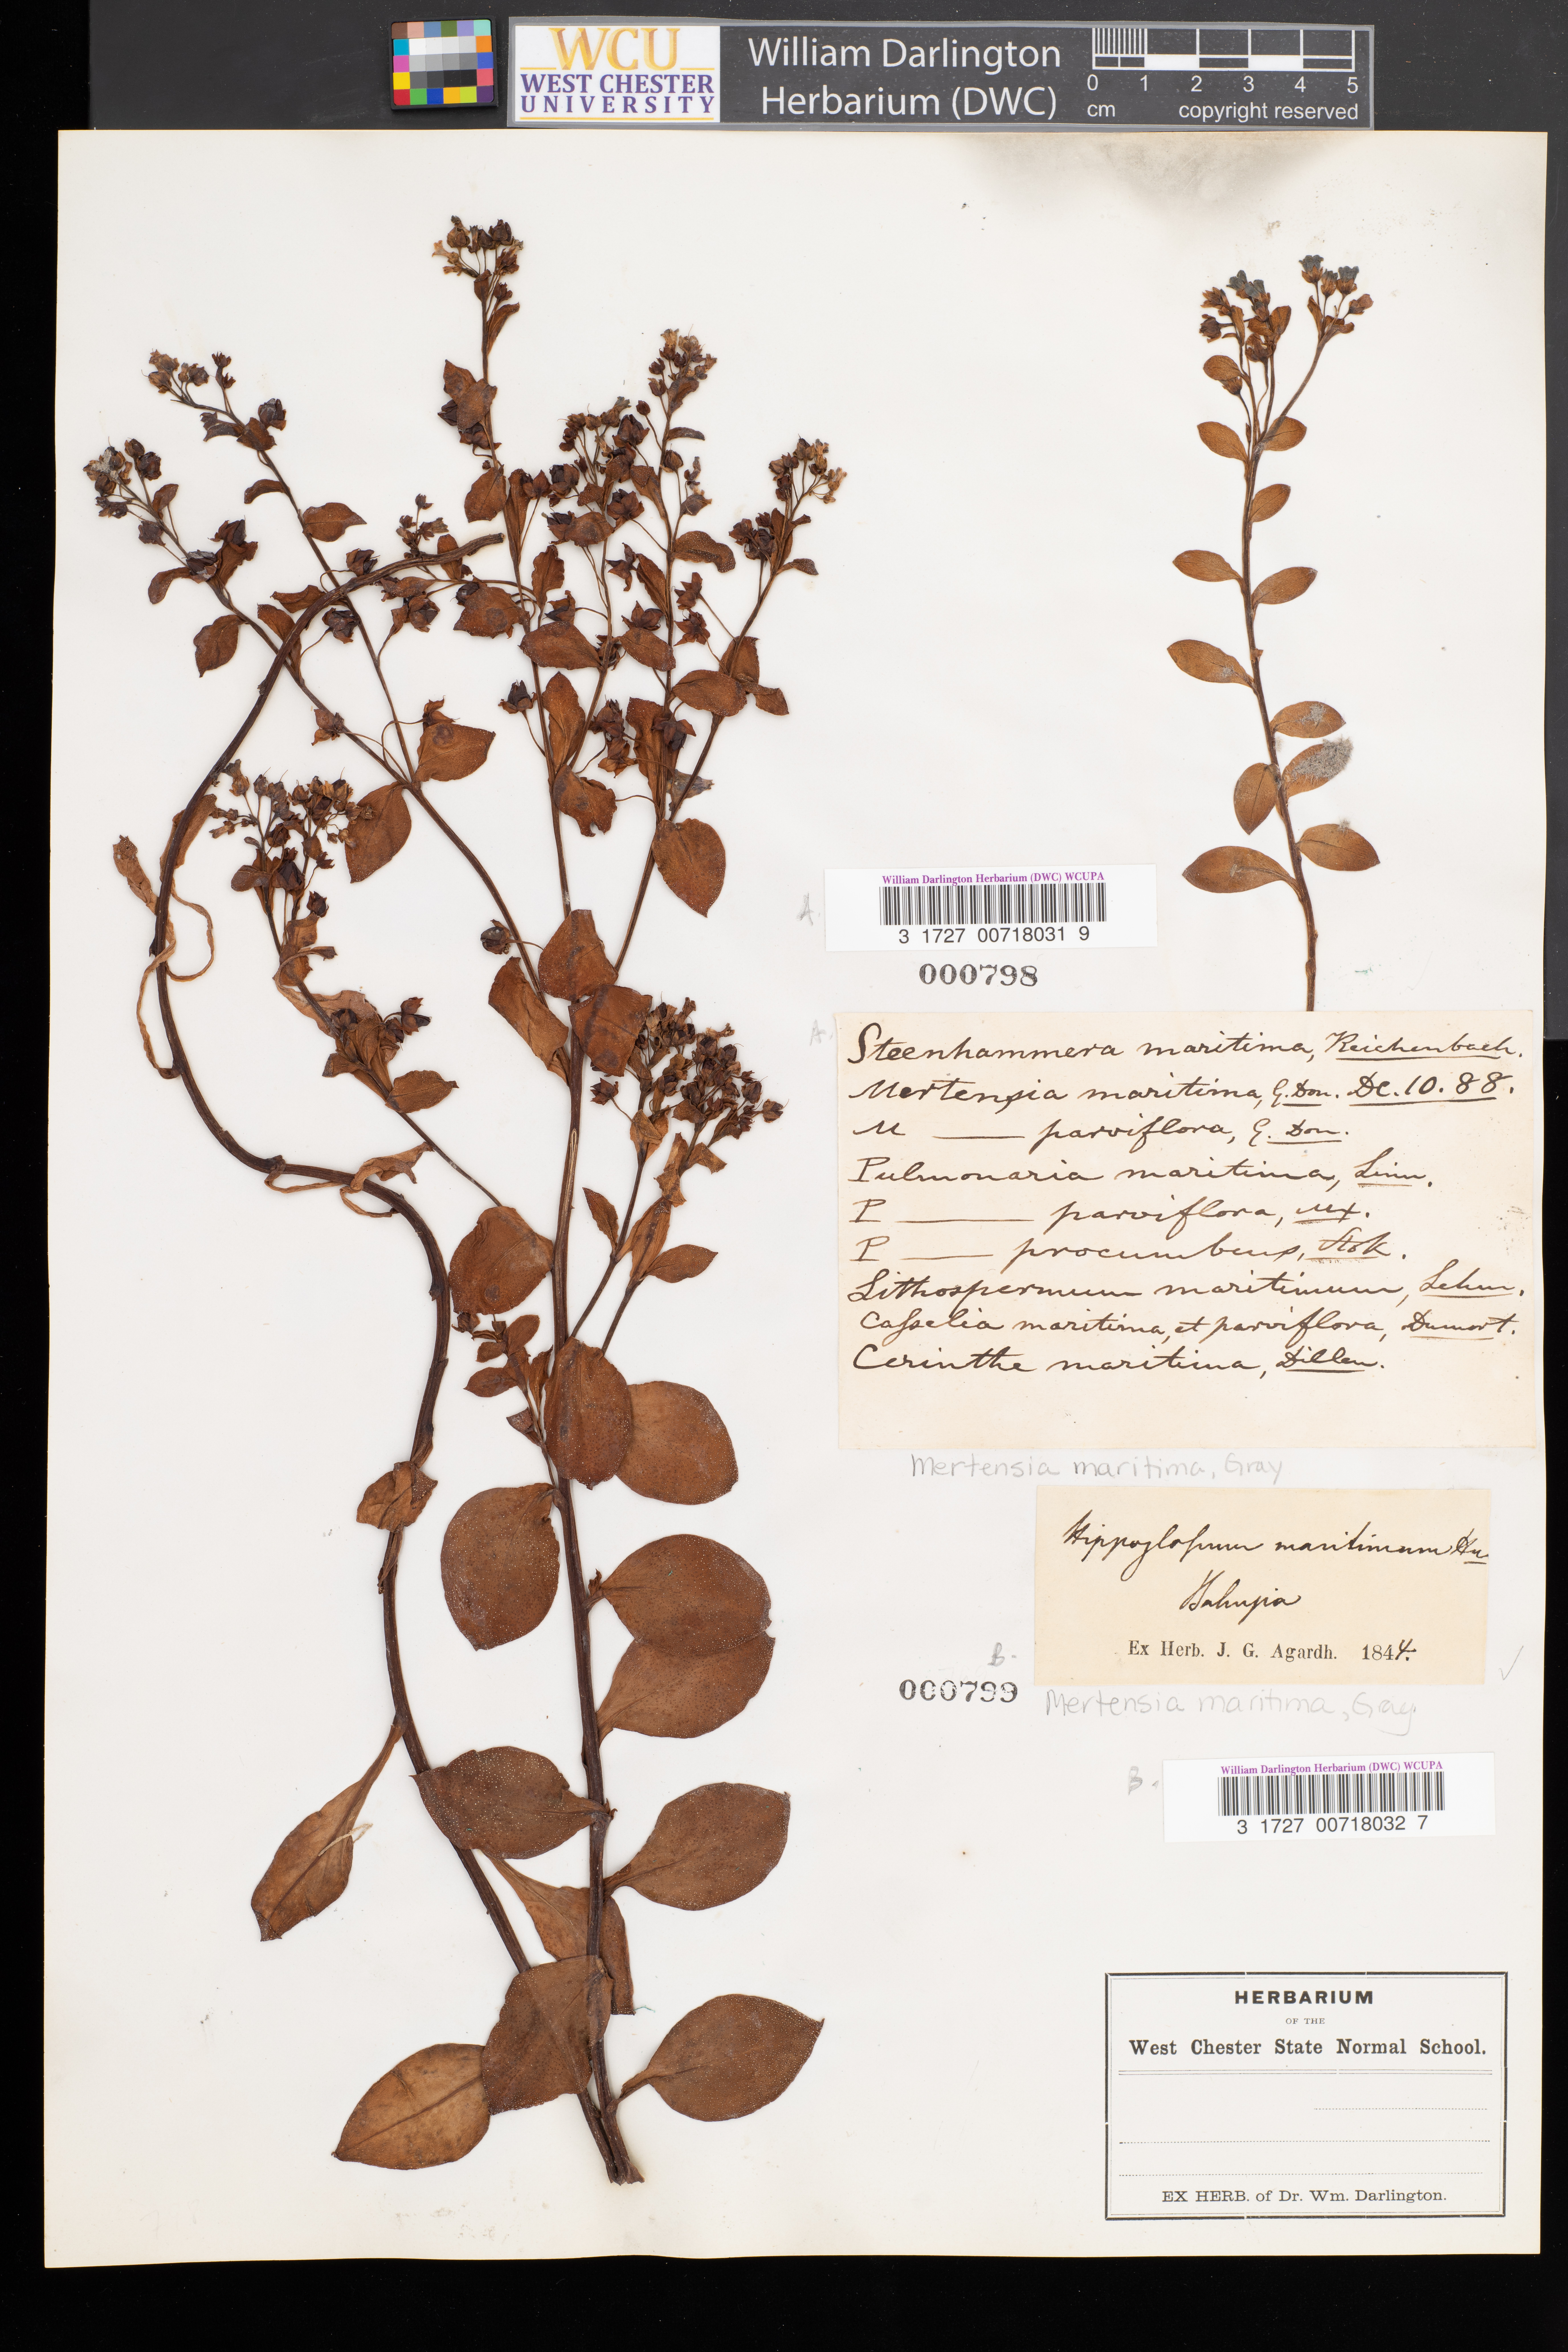 WCU
WEST CHESTER
UNIVERSITY
William Darlington
Herbarium (DWC)
0 1 2 3 4 5
cm copyright reserved
William Darlington Herbarium (DWC) WCUPA
A.
3 1727 00718031 9
000798
A.
Steenhammera maritima, Reichenbach.
Mertensia maritima, G. Don. DC. 10. 88.
M — parviflora, G. Don.
Pulmonaria maritima, Linn.
P — parviflora, Mx.
P — procumbens,
Lithospermum maritimum, Lehm.
Casselia maritima, et parviflora, Dumort.
Cerinthe maritima, Dillen.
Mertensia maritima, Gray
Hippoglossum maritimum
Ex Herb. J. G. Agardh. 1844.
B.
000799
Mertensia maritima, Gray
William Darlington Herbarium (DWC) WCUPA
B.
3 1727 00718032 7
HERBARIUM
OF THE
West Chester State Normal School.
EX HERB. of Dr. Wm. Darlington.